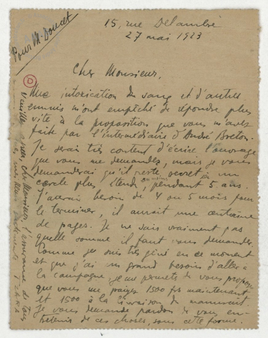 Pour M. Doucet
15, rue Delambre
27 mai 1923
Cher Monsieur,
Une intoxication du sang et d'autres
ennuis m'ont empêché de répondre plus
vite à la proposition que vous m'avez
faite par l'intermédiaire d'André Breton.
Je serai très content d'écrire l'ouvrage
que vous me demandez, mais je vous
demanderai qu'il reste secret un
pendant 5 ans.
J'aurai besoin de 4 ou 5 mois pour
le terminer, il aurait une centaine
de pages. Je ne sais vraiment pas
quelle somme il faut vous demander
comme je suis très gêné en ce moment
et que j'ai un grand besoin d'aller à
la campagne je me permets de vous proposer
que vous me payiez 1500 frs maintenant
et 1500 à la livraison du manuscrit.
Je vous demande pardon de vous
de ces choses, sous cette forme.
Veuillez Monsieur